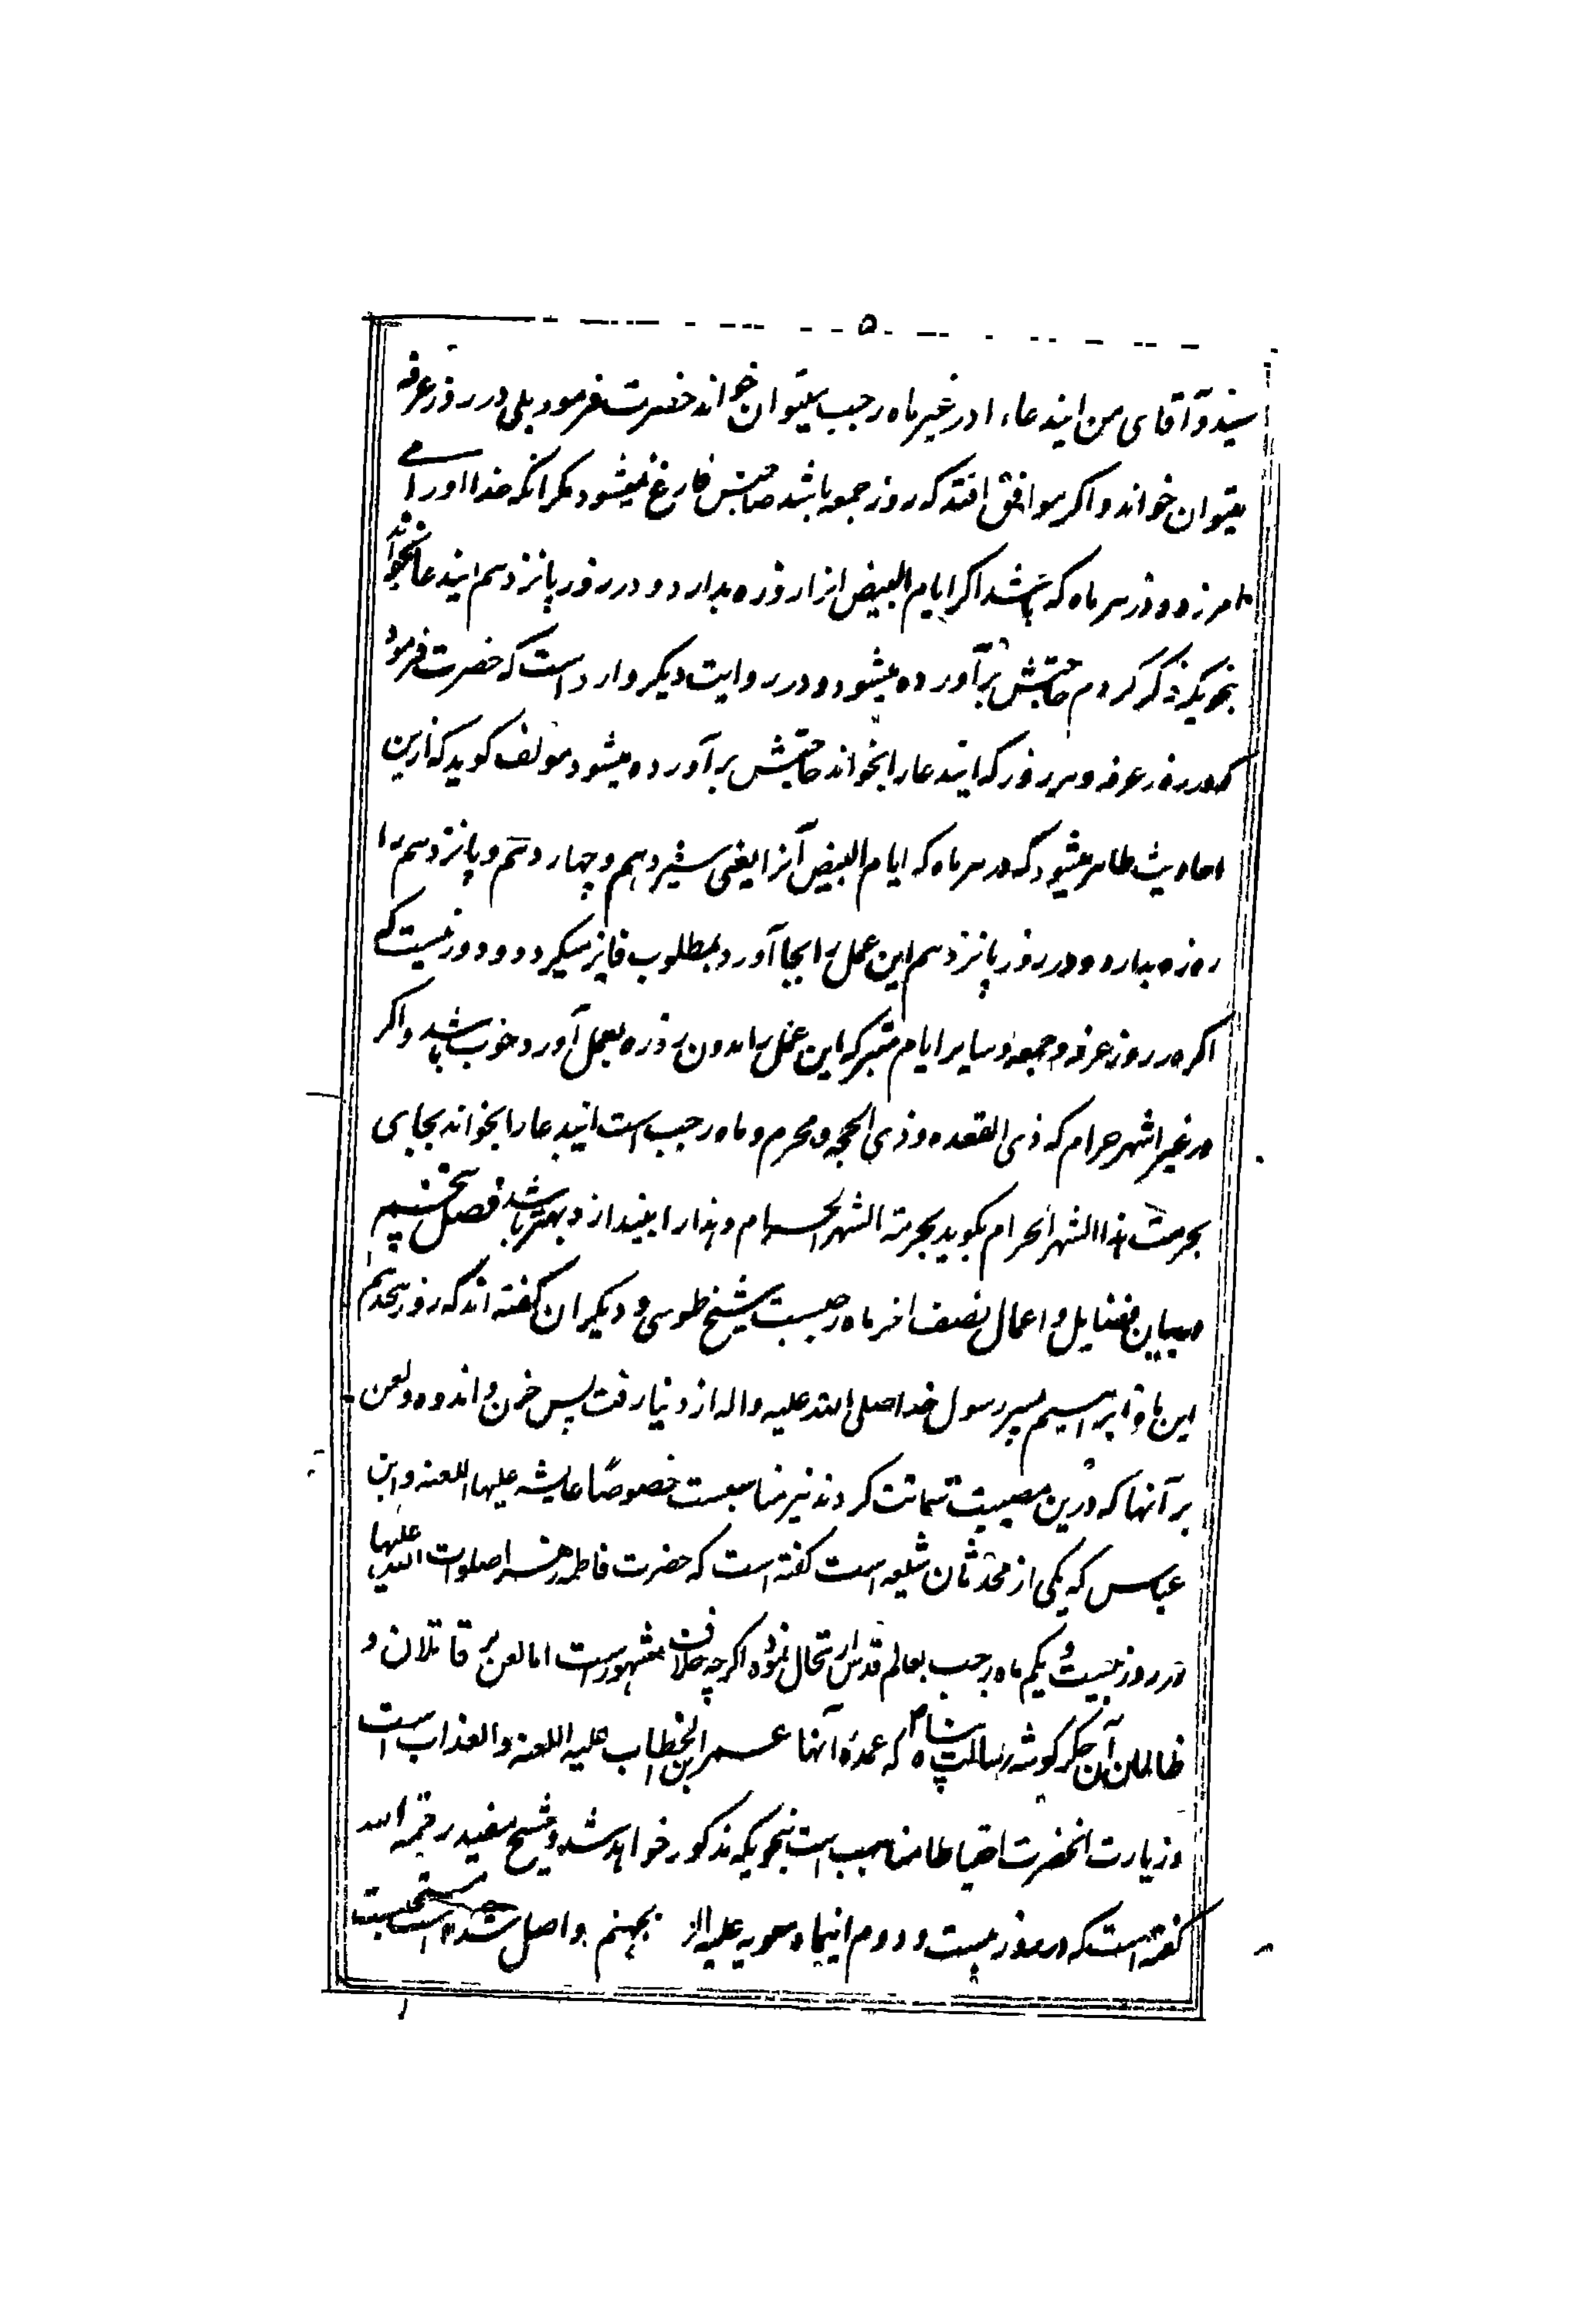 ۵
سید و آقای من ایندعاء را در غیر ماه رجب میتوان خواند حضرت فرمود بلی در روز عرفه
میتوان خواند و اکر موافق افتد که روز جمعه باشد صاحبش فارغ نمیشود مکر انکه خدا او را می
امرزد و در هر ماه که باشد اکر ایام البیض انرا روزه بدارد و در روز پانزدهم ایندعا بخواند
بنحویکه ذکر کردم حاجتش برآورده میشود و در روایت دیکر وارد است که حضرت فرمود
که در روز عرفه و هر روز که ایندعا را بخواند حاجتش برآورده میشود مولف کوید که ازین
احادیث ظاهر میشود که در هر ماه که ایام البیض آنرا یعنی سیزدهم و چهاردهم و پانزدهم را
روزه بدارد و در روز پانزدهم این عمل را بجا آورد بمطلوب فایز میکردد و دور نیست که
اکر در روز عرفه و جمعه و سایر ایام متبرکه این عمل را بدون روزه بعمل آورد خوب باشد و اکر
در غیر اشهر حرام که ذی القعده و ذی الحجه و محرم و ماه رجب است ایندعا را بخواند بجای
بحرمت هذا الشهر الحرام بکوید بحرمة الشهر الحرام و هذا را بیندازد بهتر باشد فصل پنجم
در بیان فضایل و اعمال نصف اخر ماه رجبست شیخ طوسی و دیکران کفته اند که روز هجدهم
این ماه ابراهیم پسر رسول خدا صلی الله علیه واله از دنیا رفت پس حزن و اندوه و لعن
بر آنها که درین مصیبت شماتت کردند نیز مناسبست خصوصًا عایشه علیها اللعنه و ابن
عباس که یکی از محدثان شیعه است کفته است که حضرت فاطمه زهرا صلوات الله علیها
در روز بیست و یکم ماه رجب بعالم قدس ارتحال نموده اکرچه خلاف مشهور است اما لعن بر قاتلان و
ظالمان آن جکر کوشه رسالت پناه ص که عمده آنها عمر بن الخطاب علیه اللعنه والعذاب است
و زیارت انحضرت احتیاطا مناسب است بنحویکه مذکور خواهد شد و شیخ مفید رحمه الله
کفته است که در روز بیست و دوم اینماه معویه علیه بجهنم واصل شده است مستحبست